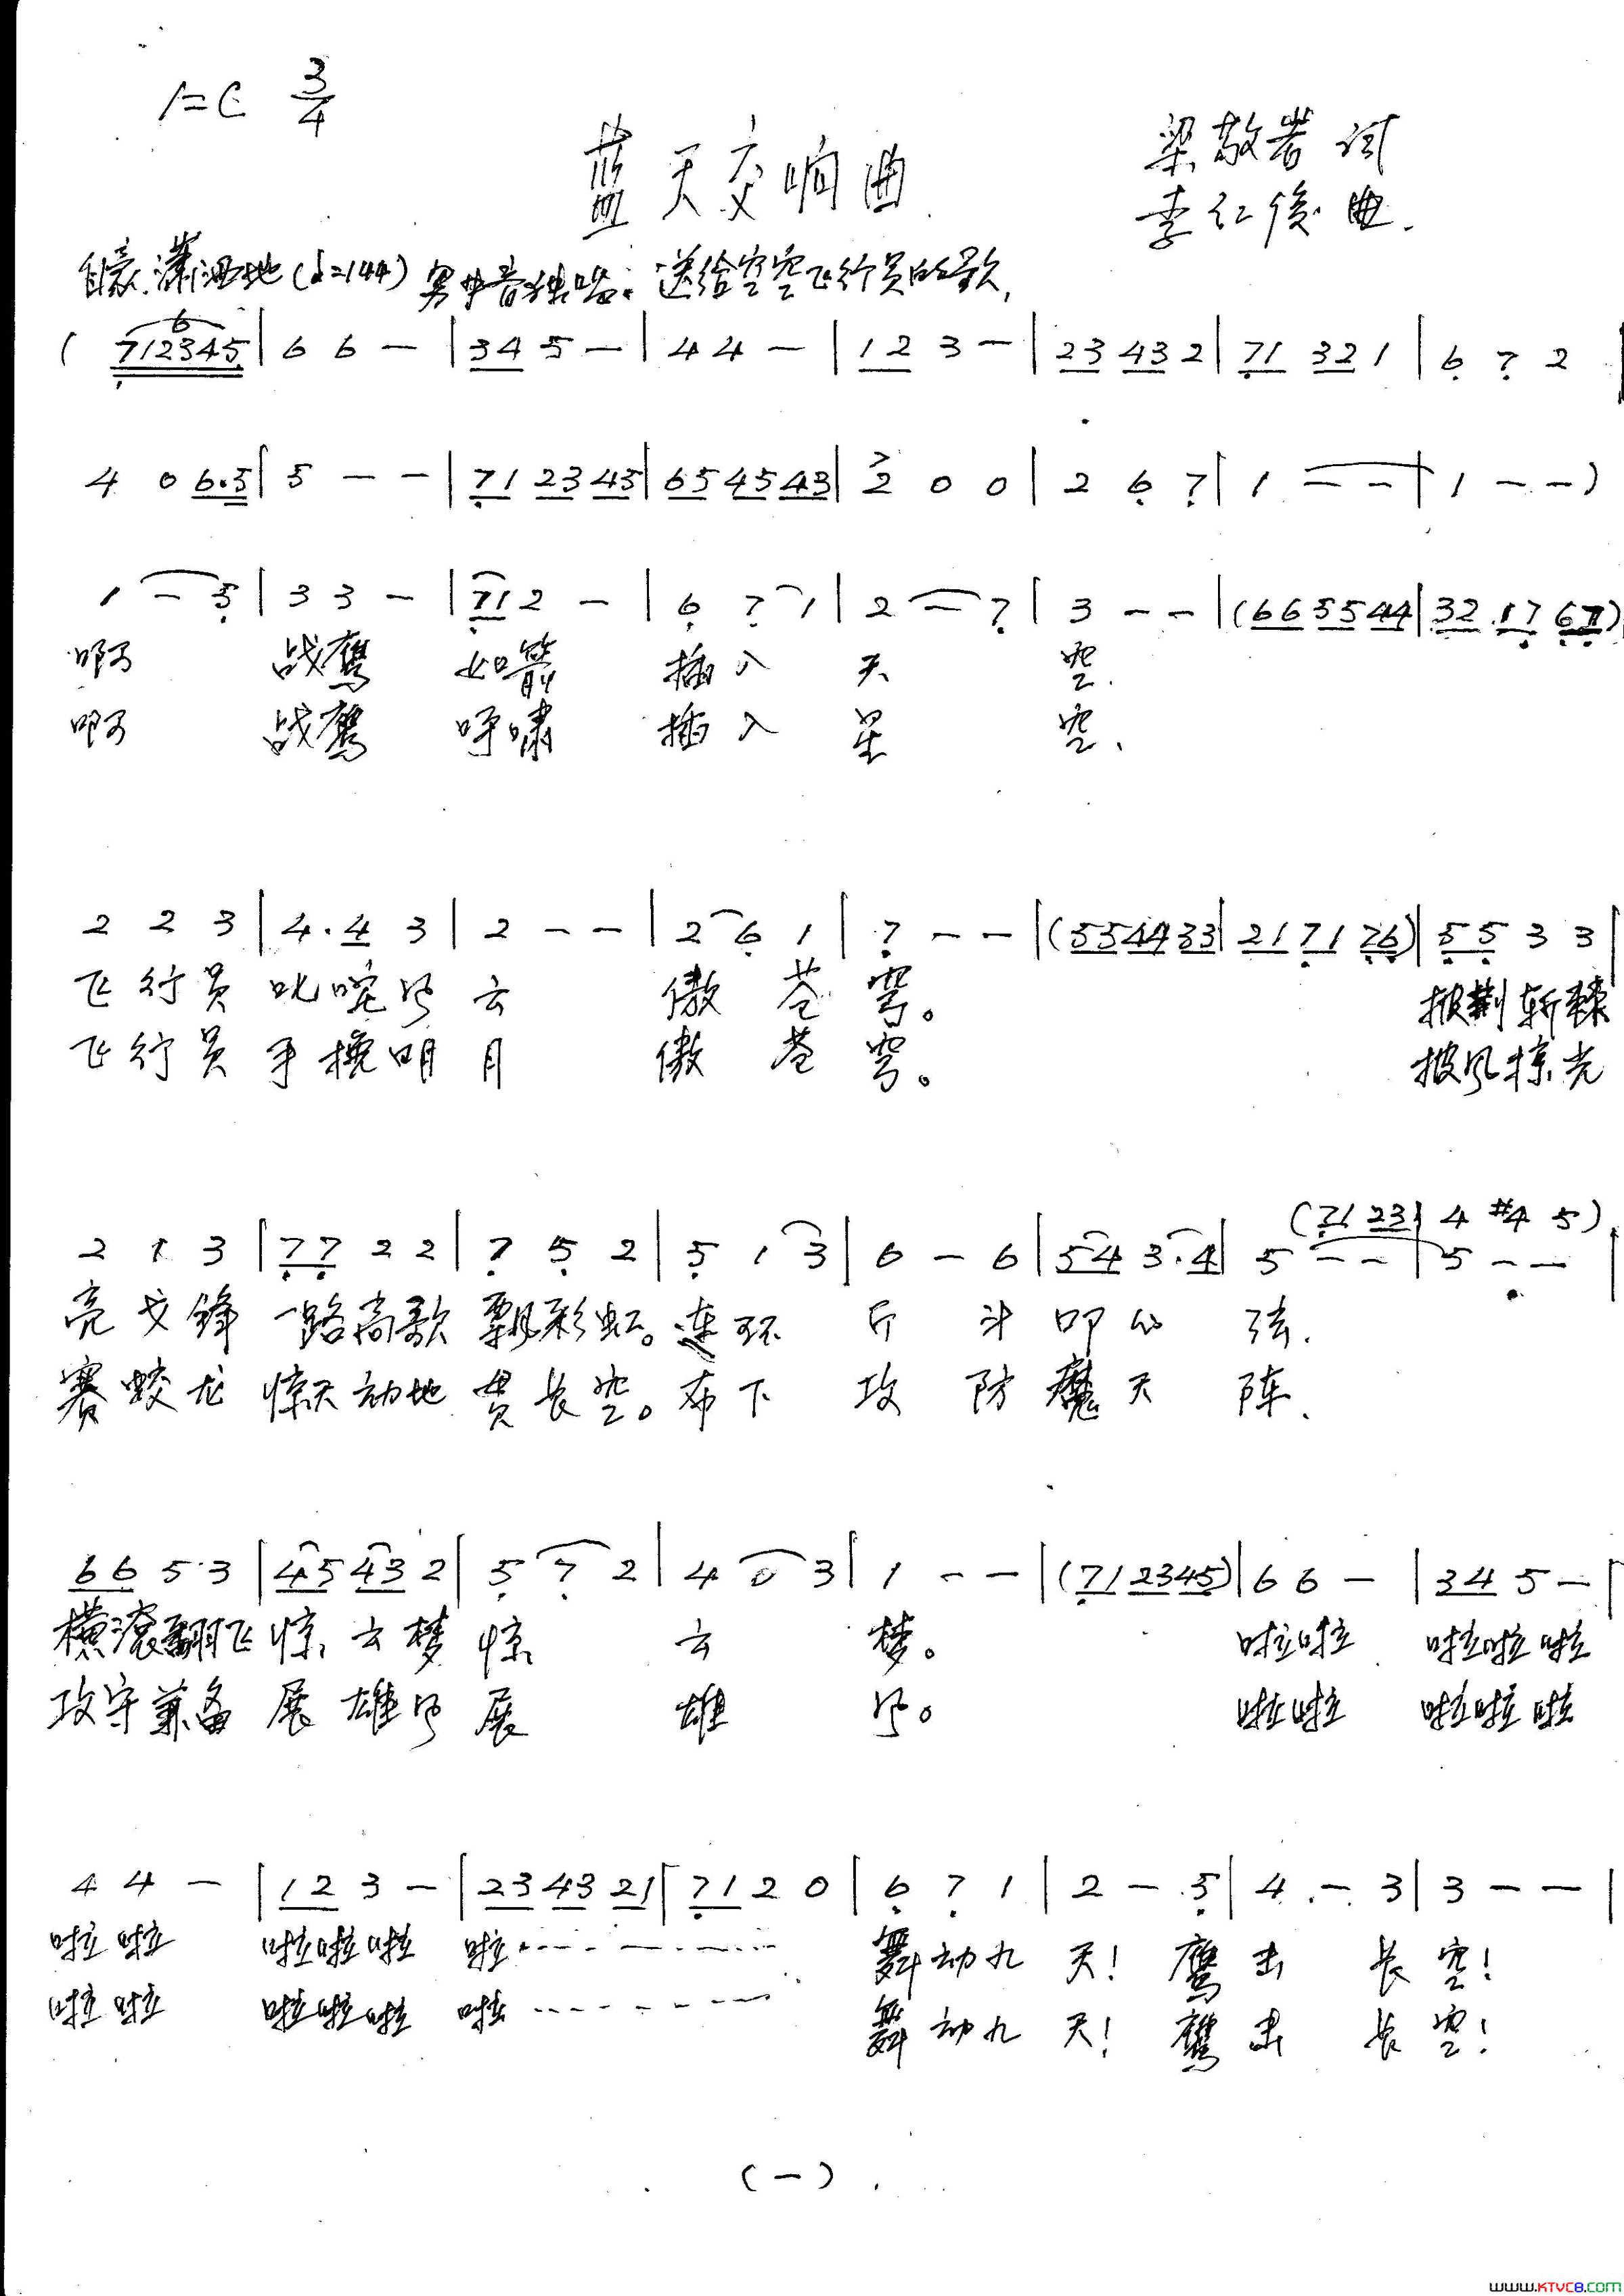 1=C 3/4
蓝天交响曲
梁敬岩 词
李仁俊 曲.
自豪.潇洒地(♩=144) 男中音独唱: 送给空军飞行员的歌
( 712345 | 6 6 — | 34 5 — | 4 4 — | 12 3 — | 23 43 2 | 71 32 1 | 6 7 2 |
4 0 6.5 | 5 — — | 71 23 45 | 65 45 43 | 2 0 0 | 2 6 7 | 1 — — | 1 — — )
1 — 5 | 3 3 — | 71 2 — | 6 7 1 | 2 — 7 | 3 — — | (66 55 44 | 32 17 67)
啊 战鹰 如箭 插入 天 空.
啊 战鹰 呼啸 插入 星 空、
2 2 3 | 4. 4 3 | 2 — — | 2 6 1 | 7 — — | (55 44 33 | 21 71 76) | 55 3 3 |
飞行员 叱咤风云 傲苍穹。 披荆斩棘
飞行员 手挽明月 傲苍穹。 披风掠光
(71 23 | 4 #4 5)
2 1 3 | 77 2 2 | 7 5 2 | 5 1 3 | 6 — 6 | 54 3.4 | 5 — — | 5 — — |
亮戈锋 一路高歌 飘彩虹。连环 斤 斗 叩心 弦.
赛蛟龙 惊天动地 贯长空。布下 攻 防 魔天 阵、
66 5 3 | 45 43 2 | 5 7 2 | 4 0 3 | 1 — — | (71 23 45) | 6 6 — | 34 5 — |
横滚翻飞 惊云梦 惊 云 梦。 啦啦 啦啦啦
攻守兼备 展雄风 展 雄 风。 啦啦 啦啦啦
4 4 — | 12 3 — | 23 43 21 | 71 2 0 | 6 7 1 | 2 — 5 | 4 — 3 | 3 — — |
啦啦 啦啦啦 啦………… 舞动九 天! 鹰击 长空!
啦啦 啦啦啦 啦………… 舞动九 天! 鹰击 长空!
(一)
www.KTVC8.com